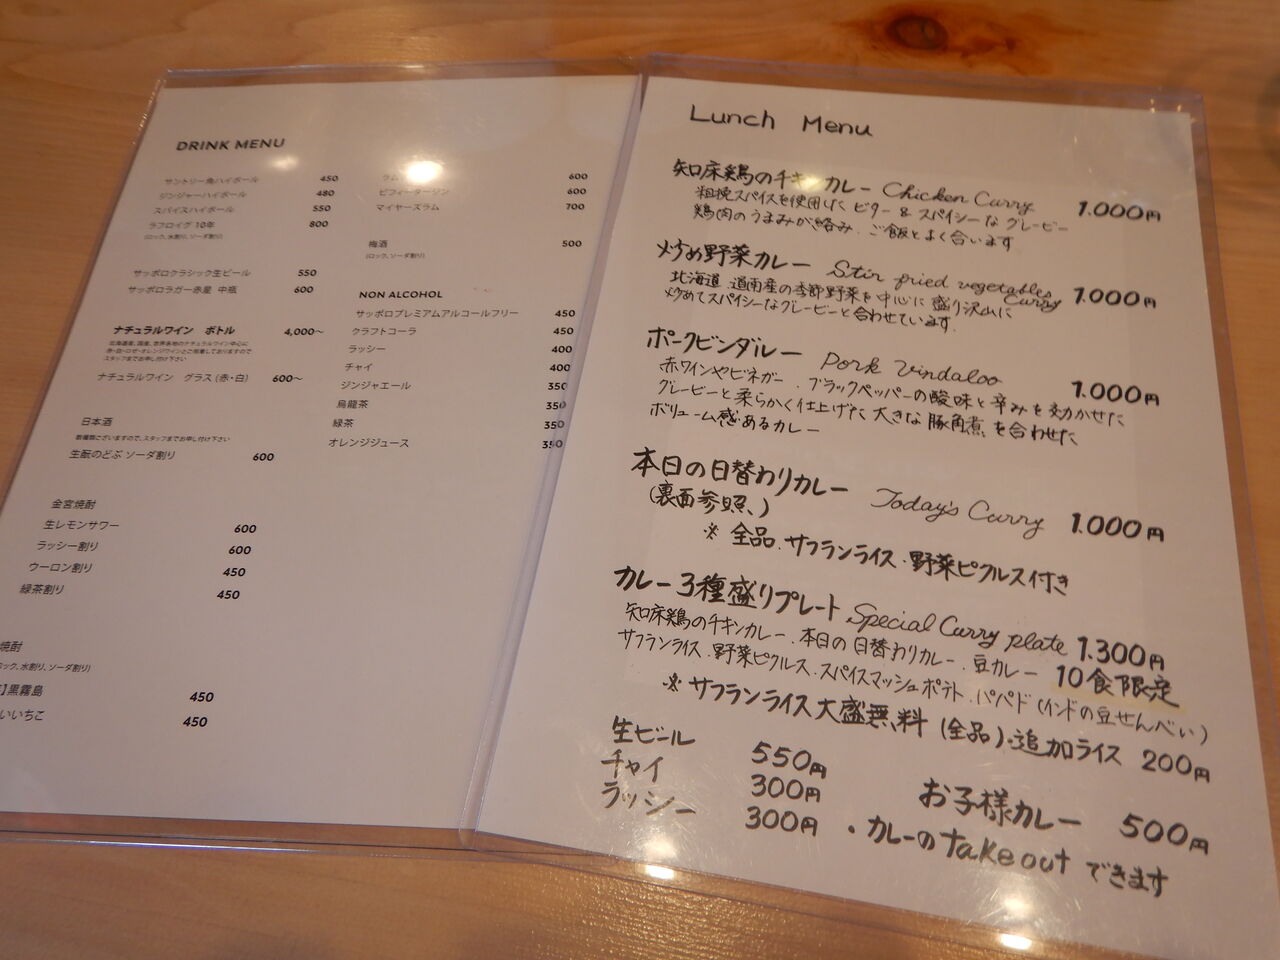 DRINK MENU
サントリー角ハイボール 450
ジンジャーハイボール 480
スパイスハイボール 550
ラフロイグ 10年 800
(ロック、水割り、ソーダ割り)
サッポロクラシック生ビール 550
サッポロラガー赤星 中瓶 600
ナチュラルワイン ボトル 4,000〜
北海道産、国産、世界各地のナチュラルワイン中心に
赤・白・ロゼ・オレンジワインとご用意しておりますので
スタッフまでお申し付け下さい
ナチュラルワイン グラス (赤・白) 600〜
日本酒
数種類ございますので、スタッフまでお申し付け下さい
生酛のどぶ ソーダ割り 600
金宮焼酎
生レモンサワー 600
ラッシー割り 600
ウーロン割り 450
緑茶割り 450
焼酎
ロック、水割り、ソーダ割り)
】黒霧島 450
いいちこ 450
ラム 600
ビフィータージン 600
マイヤーズラム 700
梅酒 500
(ロック、ソーダ割り)
NON ALCOHOL
サッポロプレミアムアルコールフリー 450
クラフトコーラ 450
ラッシー 400
チャイ 400
ジンジャエール 350
烏龍茶 350
緑茶 350
オレンジジュース 350
Lunch Menu
知床鶏のチキンカレー Chicken Curry 1.000円
粗挽スパイスを使用した ビター & スパイシーな グレービー
鶏肉のうまみが絡み、ご飯とよく合います
炒め野菜カレー Stir fried vegetables Curry 1.000円
北海道、道南産の季節野菜を中心に盛り沢山に
炒めてスパイシーなグレービーと合わせています.
ポークビンダルー Pork Vindaloo 1.000円
赤ワインやビネガー、ブラックペッパーの酸味と辛みを効かせた
グレービーと柔らかく仕上げた大きな豚角煮を合わせた
ボリューム感あるカレー
本日の日替わりカレー Today's Curry 1.000円
(裏面参照、)
※ 全品、サフランライス・野菜ピクルス付き
カレー3種盛りプレート Special Curry plate 1.300円
知床鶏のチキンカレー、本日の日替わりカレー、豆カレー 10食限定
サフランライス、野菜ピクルス、スパイスマッシュポテト、パパド(インドの豆せんべい)
※ サフランライス大盛無料 (全品)・追加ライス 200円
生ビール 550円
チャイ 300円
ラッシー 300円
お子様カレー 500円
・カレーのtake out できます